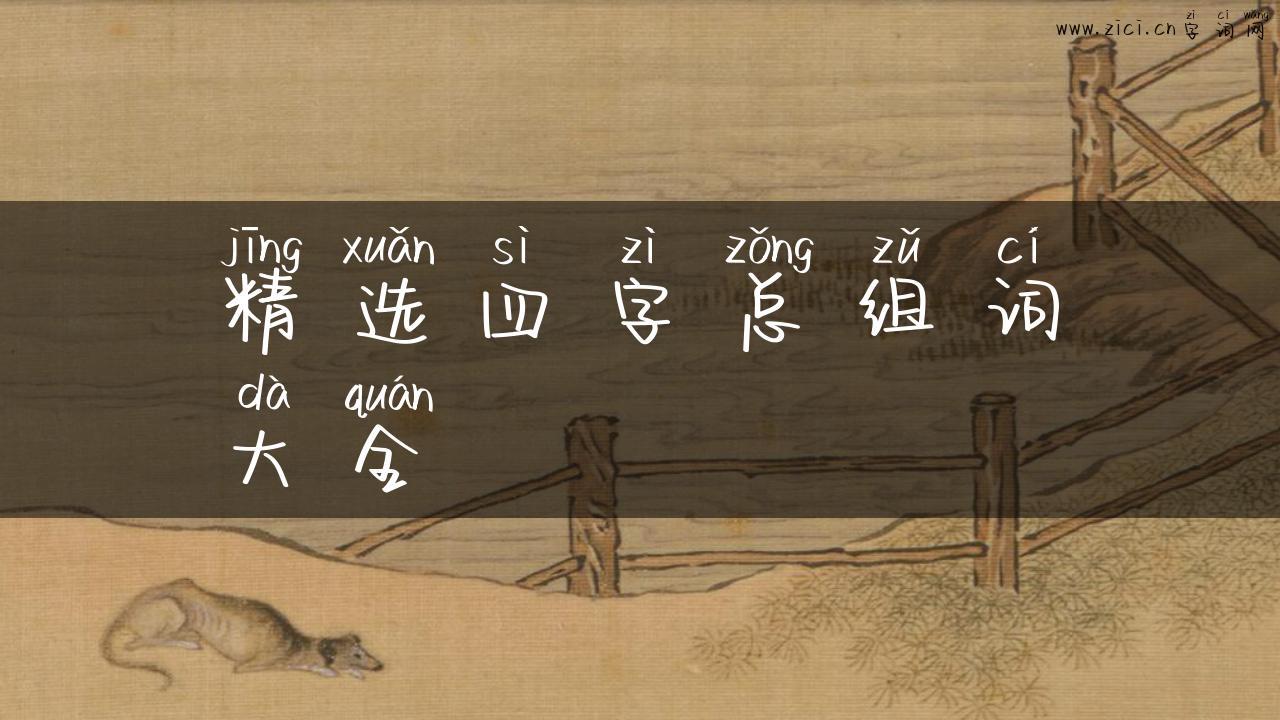 zì cí wǎng
www.zici.cn 字词网
jīng xuǎn sì zì zǒng zǔ cí
精选四字总组词
dà quán
大全